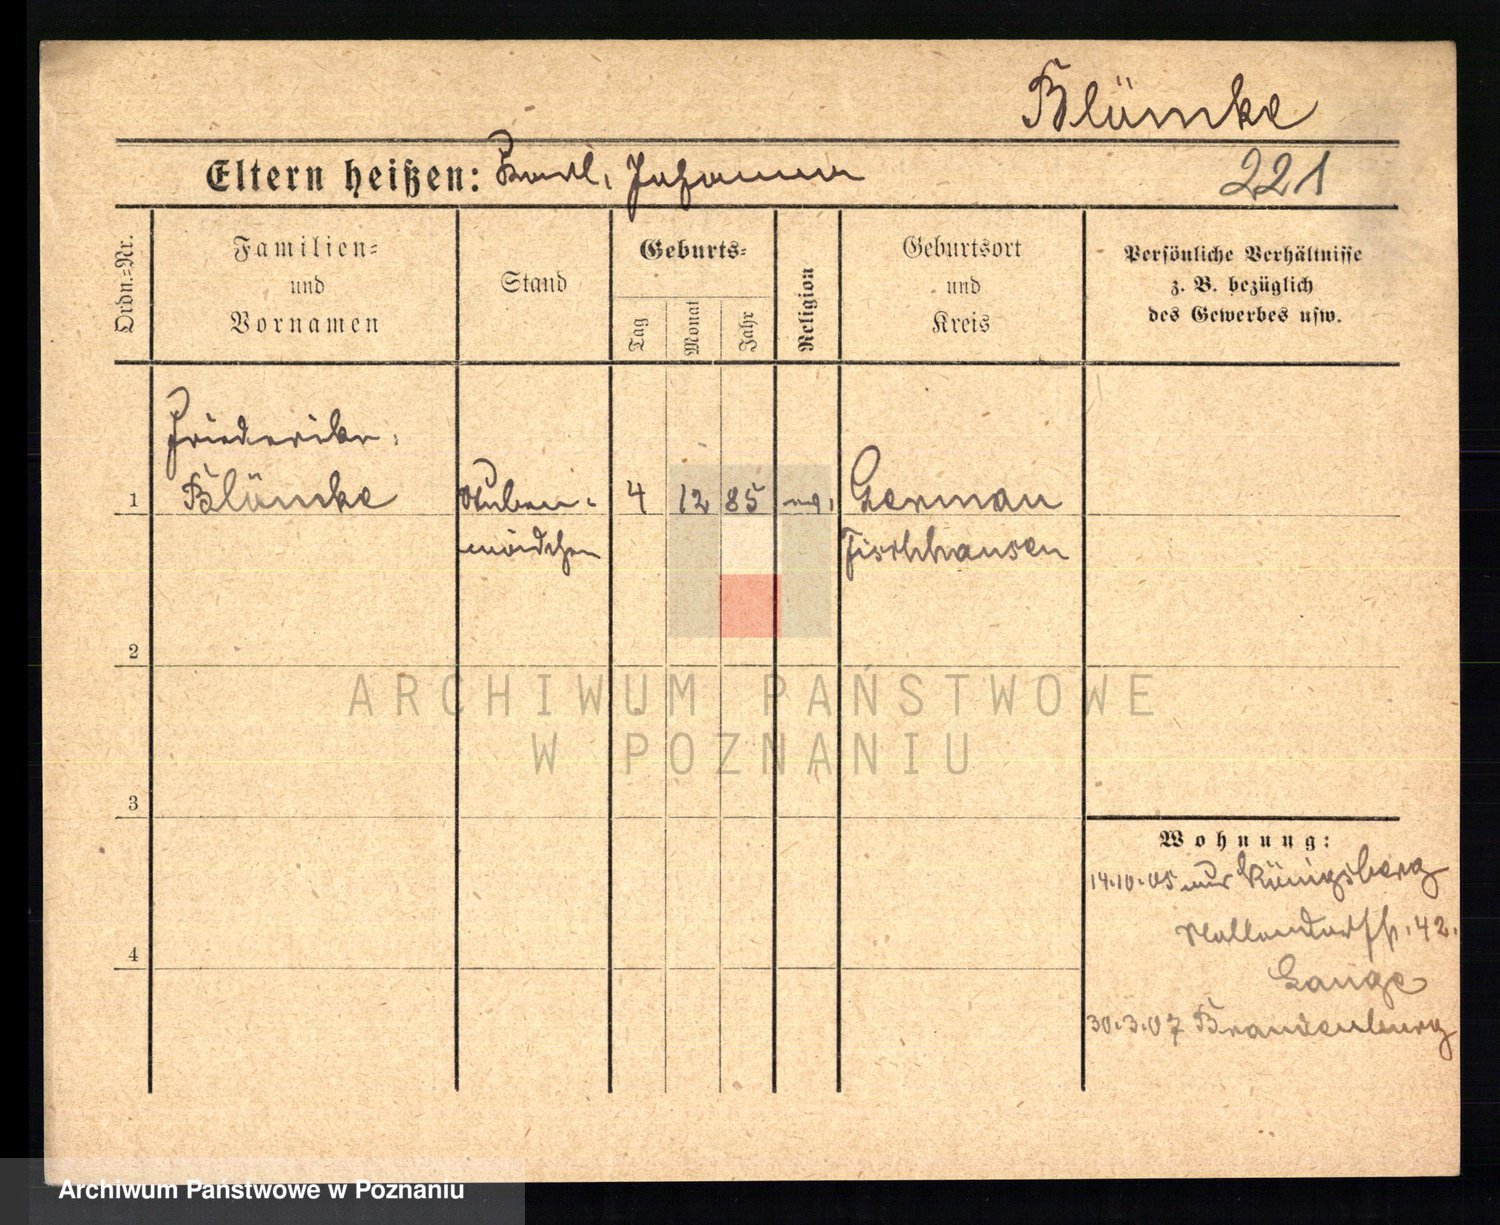 Blümke
Eltern heißen: Karl, Johanna
221
Ordn.=Nr.
Familien=
und
Vornamen
Stand
Geburts=
Tag
Monat
Jahr
Religion
Geburtsort
und
Kreis
Persönliche Verhältnisse
z. B. bezüglich
des Gewerbes usw.
Friederike
1 Blümke Stuben- 4 12 85 German
mädchen Fischhausen
2
3
4
Wohnung:
14.10.05 Königsberg
42.
Lange
30.3.07 Brandenburg
ARCHIWUM PAŃSTWOWE
W POZNANIU
Archiwum Państwowe w Poznaniu